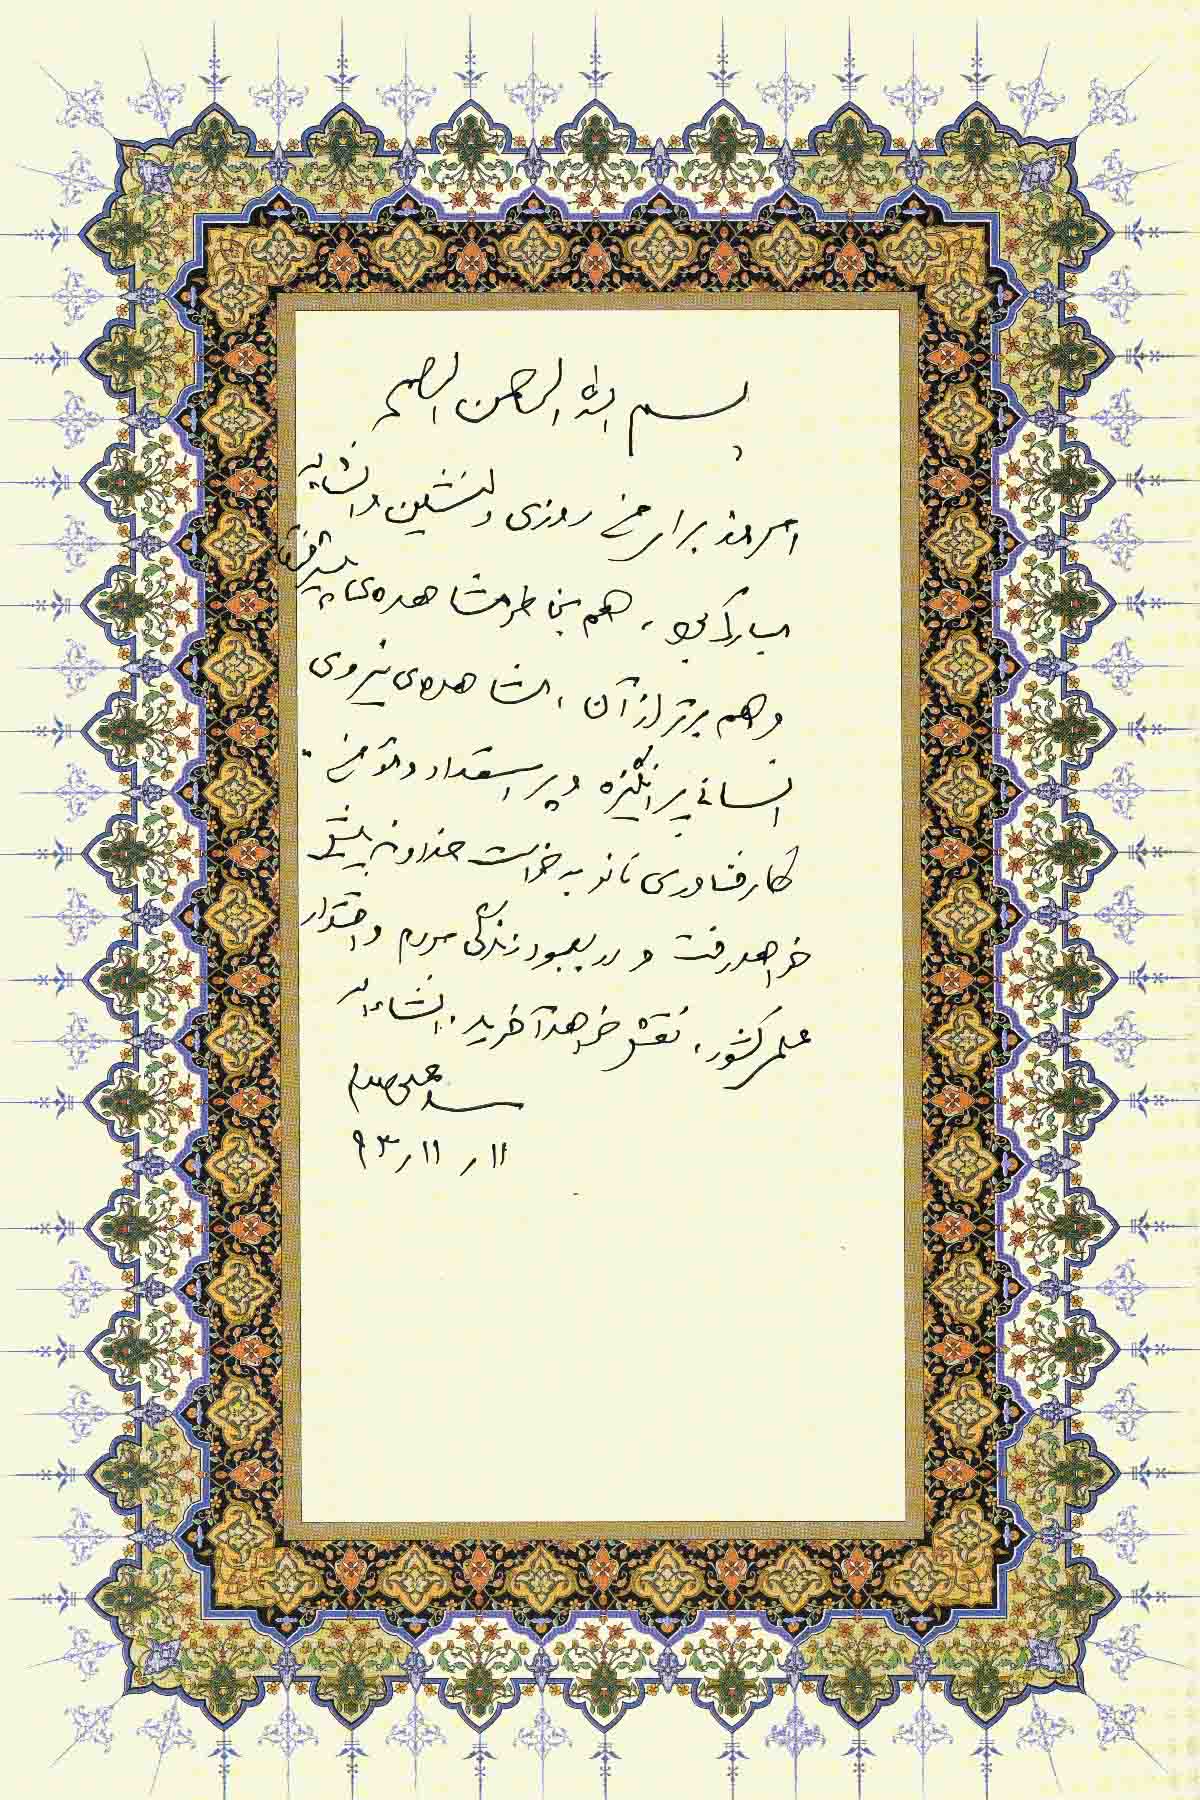 بسم الله الرحمن الرحیم
امروز برای من روزی دلنشین و انشاءاله
مبارک بود، هم بخاطر مشاهده‌ی پیشرفتها
و هم برتر از آن، مشاهده‌ی نیروی
انسانی پرانگیزه و پر استعداد و مؤمن.
کار فناوری نانو به خواست خداوند پیشتر
خواهد رفت و در بهبود زندگی مردم و اقتدار
علمی کشور، نقش خواهد آفرید. انشاءاله
سید علی خامنه‌ای
۹۳/۱۱/۱۱